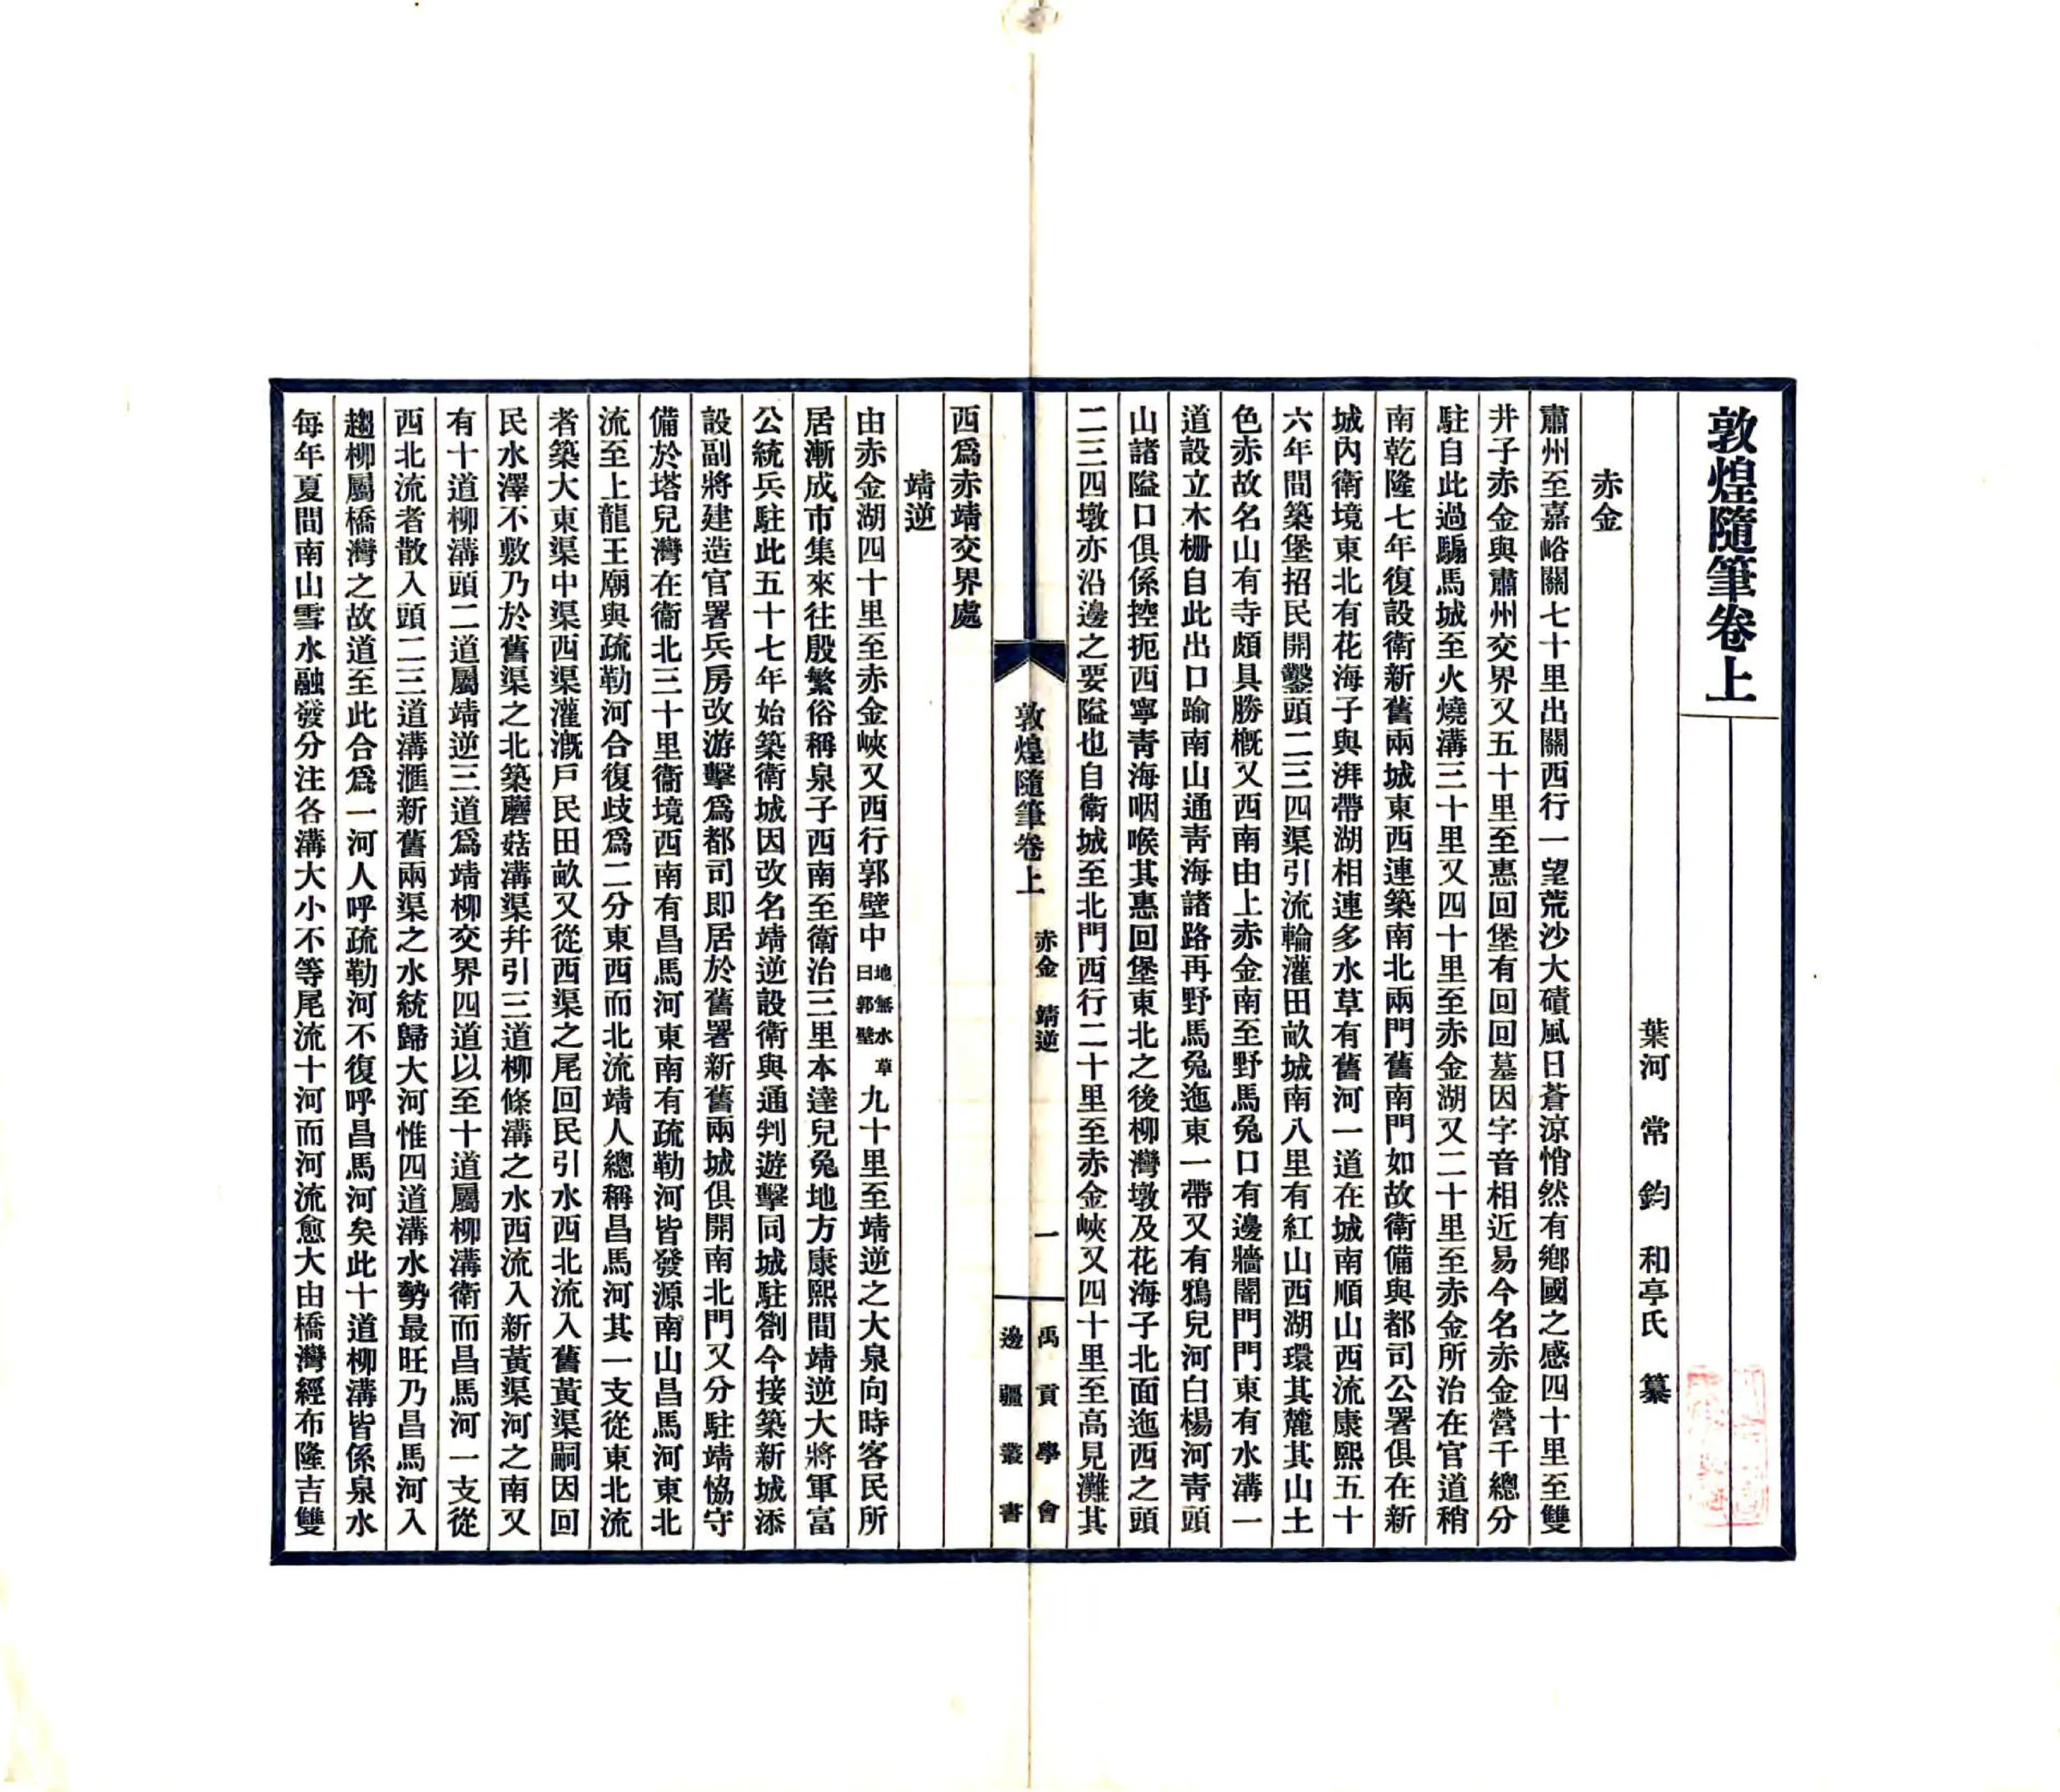 敦煌隨筆卷上
葉河　常　鈞　和亭氏　纂
赤金
肅州至嘉峪關七十里出關西行一望荒沙大磧風日蒼涼悄然有鄉國之感四十里至雙
井子赤金與肅州交界又五十里至惠回堡有回回墓因字音相近易今名赤金營千總分
駐自此過騸馬城至火燒溝三十里又四十里至赤金湖又二十里至赤金所治在官道稍
南乾隆七年復設衛新舊兩城東西連築南北兩門舊南門如故衛備與都司公署俱在新
城內衛境東北有花海子與湃帶湖相連多水草有舊河一道在城南順山西流康熙五十
六年間築堡招民開鑿頭二三四渠引流輪灌田畝城南八里有紅山西湖環其麓其山土
色赤故名山有寺頗具勝槪又西南由上赤金南至野馬兔口有邊牆闇門門東有水溝一
道設立木栅自此出口踰南山通靑海諸路再野馬兔迤東一帶又有鴉兒河白楊河靑頭
山諸隘口俱係控扼西寧靑海咽喉其惠回堡東北之後柳灣墩及花海子北面迤西之頭
二三四墩亦沿邊之要隘也自衛城至北門西行二十里至赤金峽又四十里至高見灘其
敦煌隨筆卷上　赤金　靖逆　一
禹貢學會
邊疆叢書
西爲赤靖交界處
靖逆
由赤金湖四十里至赤金峽又西行郭壁中地無水草曰郭壁九十里至靖逆之大泉向時客民所
居漸成市集來往殷繁俗稱泉子西南至衛治三里本達兒兔地方康熙間靖逆大將軍富
公統兵駐此五十七年始築衛城因改名靖逆設衛與通判遊擊同城駐劄今接築新城添
設副將建造官署兵房改游擊爲都司即居於舊署新舊兩城俱開南北門又分駐靖恊守
備於塔兒灣在衞北三十里衞境西南有昌馬河東南有疏勒河皆發源南山昌馬河東北
流至上龍王廟與疏勒河合復歧爲二分東西而北流靖人總稱昌馬河其一支從東北流
者築大東渠中渠西渠灌漑戶民田畝又從西渠之尾回民引水西北流入舊黃渠嗣因回
民水澤不敷乃於舊渠之北築蘑菇溝渠幷引三道柳條溝之水西流入新黃渠河之南又
有十道柳溝頭二道屬靖逆三道爲靖柳交界四道以至十道屬柳溝衛而昌馬河一支從
西北流者散入頭二三道溝滙新舊兩渠之水統歸大河惟四道溝水勢最旺乃昌馬河入
趨柳屬橋灣之故道至此合爲一河人呼疏勒河不復呼昌馬河矣此十道柳溝皆係泉水
每年夏間南山雪水融發分注各溝大小不等尾流十河而河流愈大由橋灣經布隆吉雙